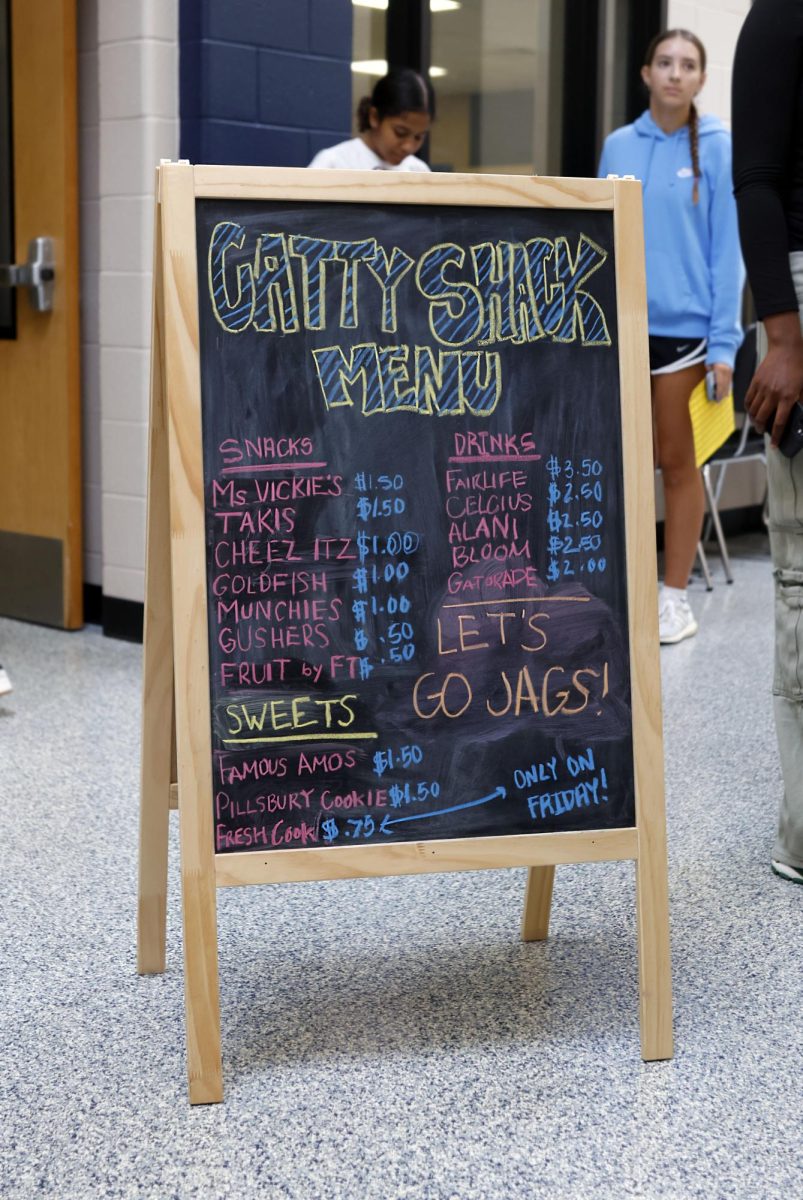 CATTY SHACK
MENU
SNACKS
MS VICKIE'S $1.50
TAKIS $1.50
CHEEZ ITZ $1.00
GOLDFISH $1.00
MUNCHIES $1.00
GUSHERS $.50
FRUIT by FT $.50
SWEETS
FAMOUS AMOS $1.50
PILLSBURY COOKIE $1.50
FRESH Cook $.75
DRINKS
FAIRLIFE $3.50
CELCIUS $2.50
ALANI $2.50
BLOOM $2.50
GATORADE $2.00
LET'S
GO JAGS!
ONLY ON
FRIDAY!